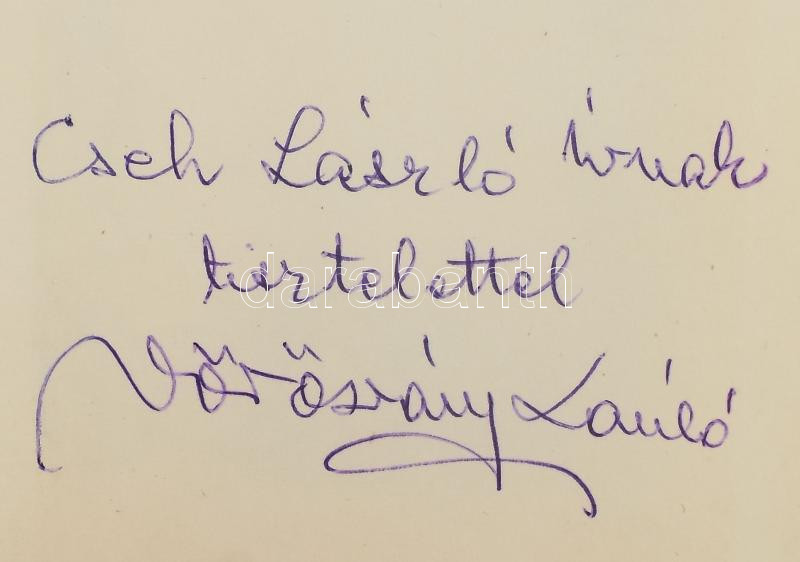 Cseh László úrnak
tisztelettel
darabanth
Vörösváry László